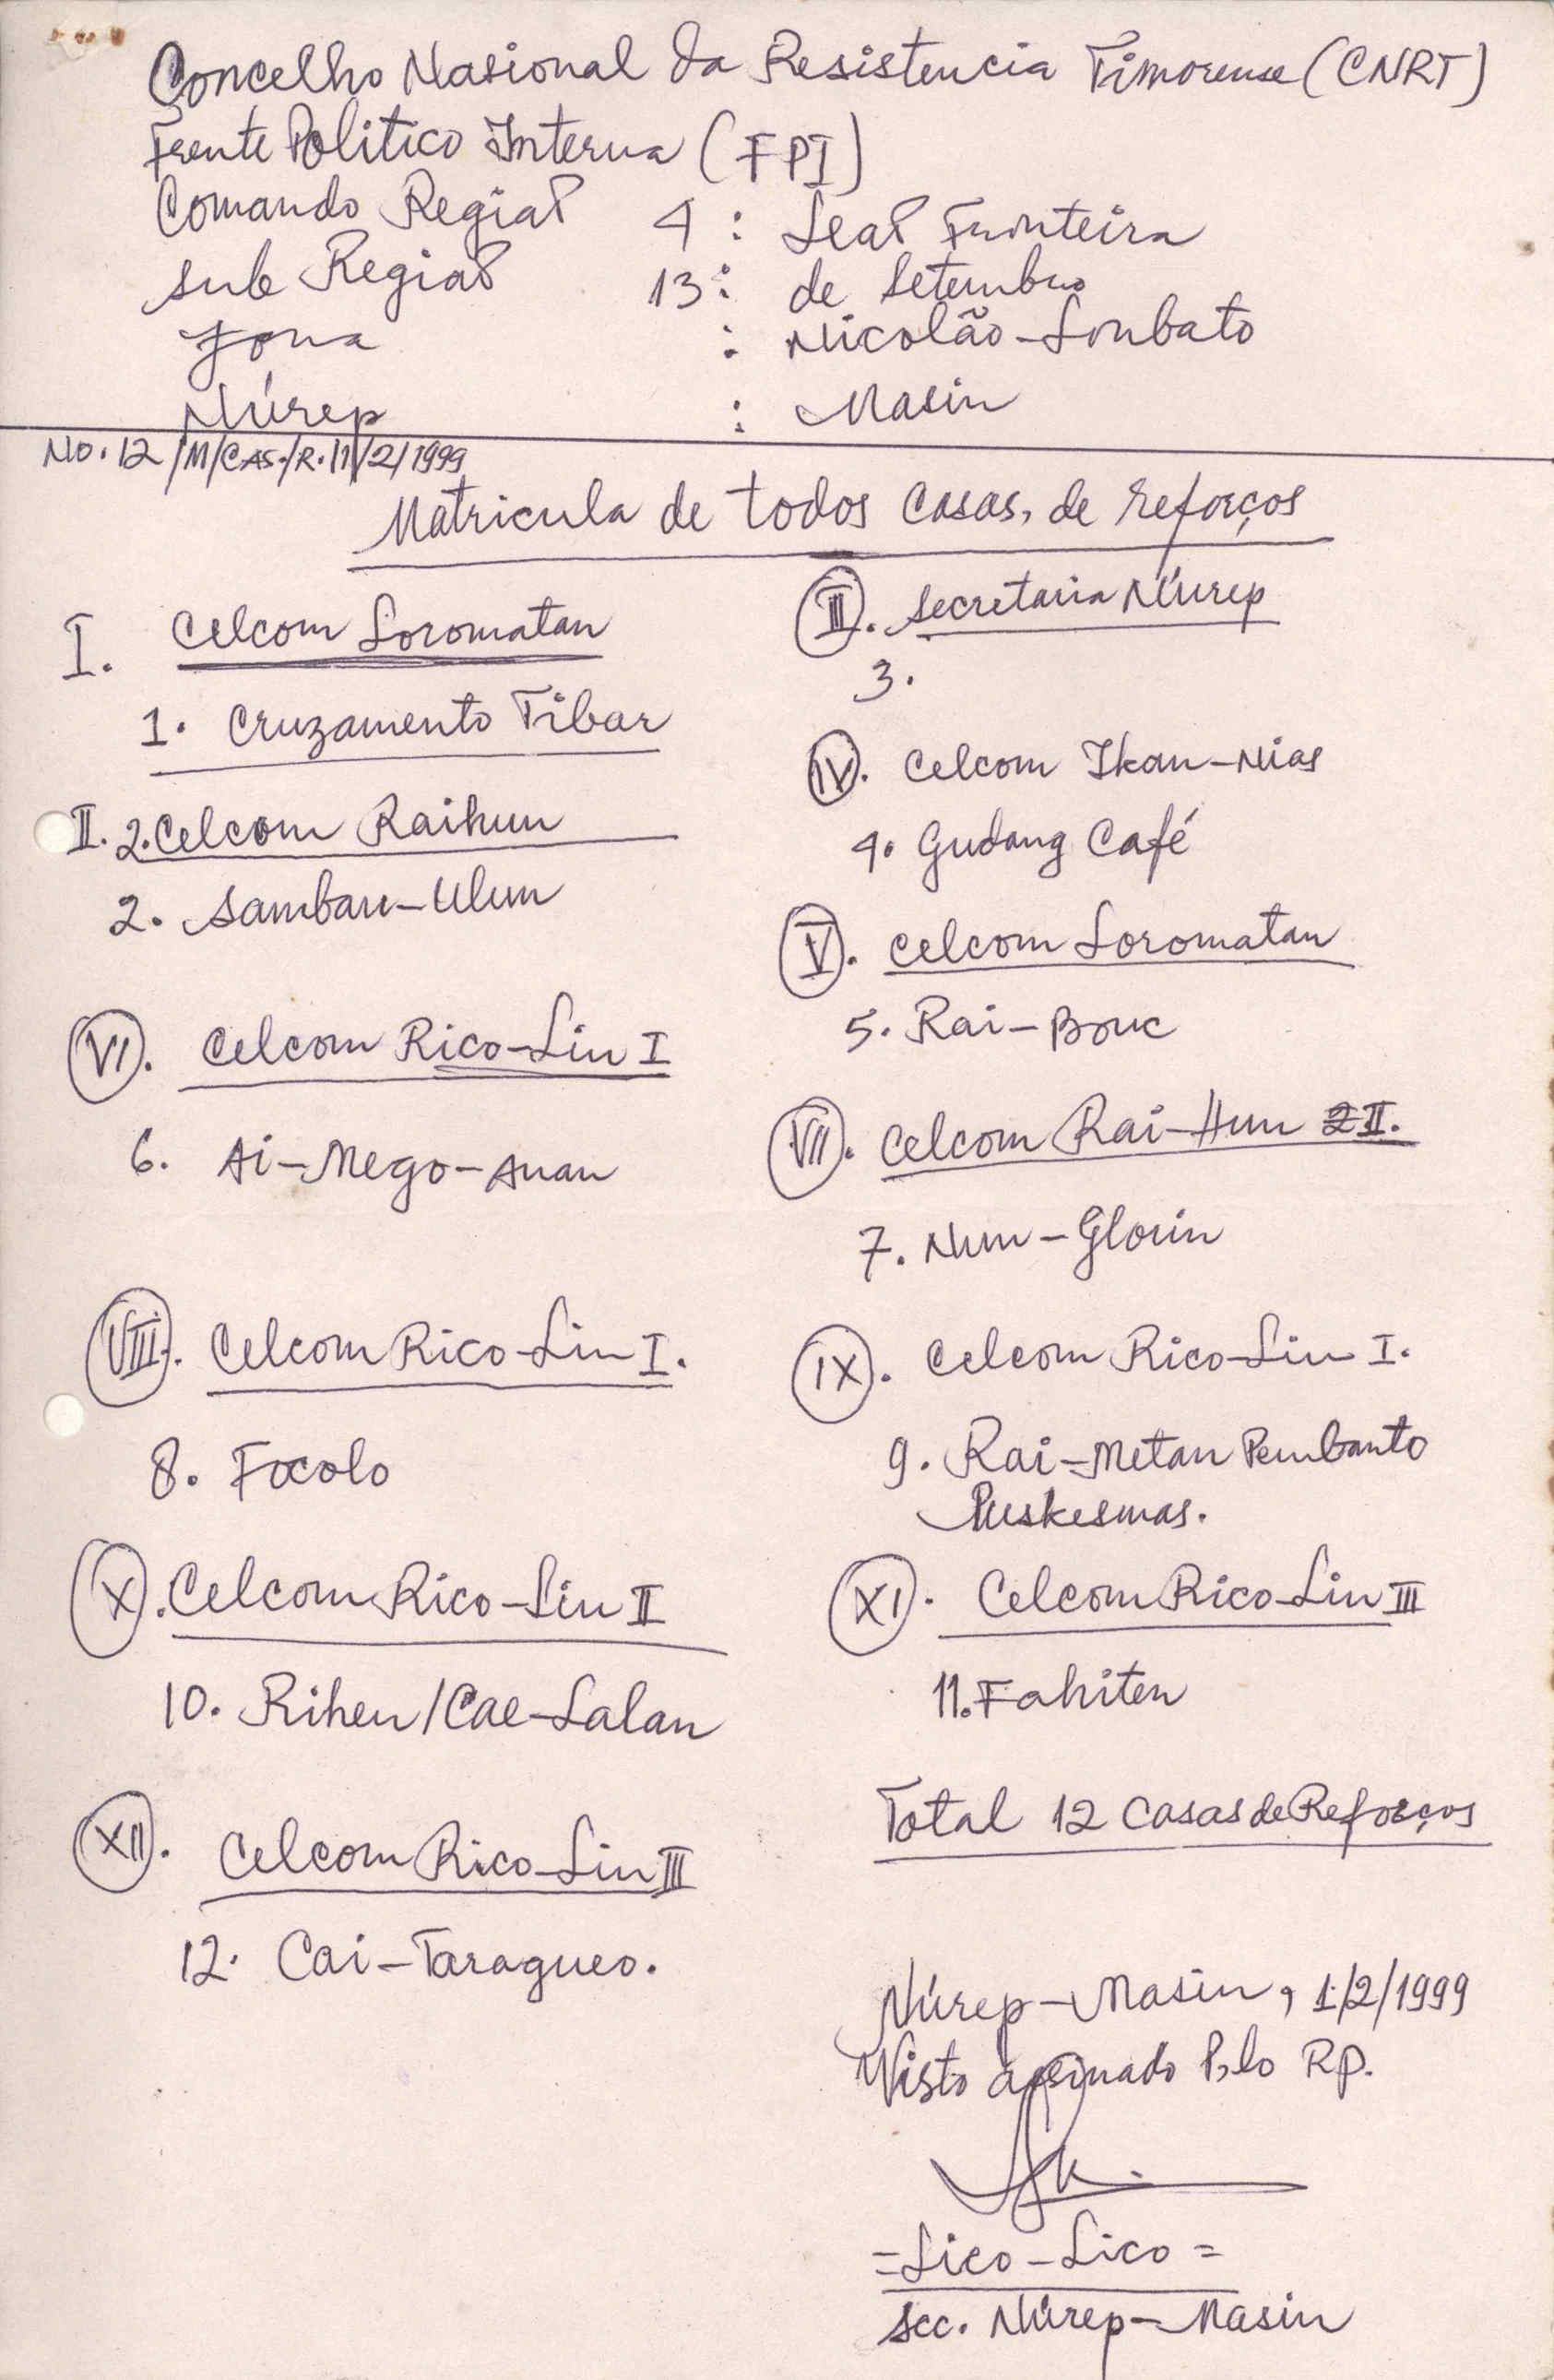 Concelho Nasional da Resistencia Timorense (CNRT)
Frente Politico Interna (FPI)
Comando Regiaõ 4 : Leaõ Fronteira
Sub Regiaõ 13 : de Setembro
Zona : Nicolão-Loubato
Núrep : Masin
NO. 12/M/CAS./R.11/2/1999
Matricula de todos casas, de reforços
I. Celcom Loromatan
1. Cruzamento Tibar
II. 2. Celcom Raihun
2. Sambau-Ulun
III. Secretaria Núrep
3.
IV. Celcom Ikan-Nias
4. Gudang Café
V. Celcom Loromatan
5. Rai-Bouc
VI. Celcom Rico-Liu I
6. Ai-Nego-Anan
VII. Celcom Rai-Hun 2 II.
7. Nun-Glouin
VIII. Celcom Rico-Liu I.
8. Focolo
IX. Celcom Rico-Liu I.
9. Rai-Metan Pembanto
Puskesmas.
X. Celcom Rico-Liu II
10. Rihen/Cae-Lalan
XI. Celcom Rico-Liu III
11. Fahiten
XII. Celcom Rico-Liu III
12. Cai-Taragueo.
Total 12 Casas de Reforços
Núrep-Masin, 1/2/1999
Visto assinado Pelo RP.
=Lico-Lico=
Sec. Núrep-Masin